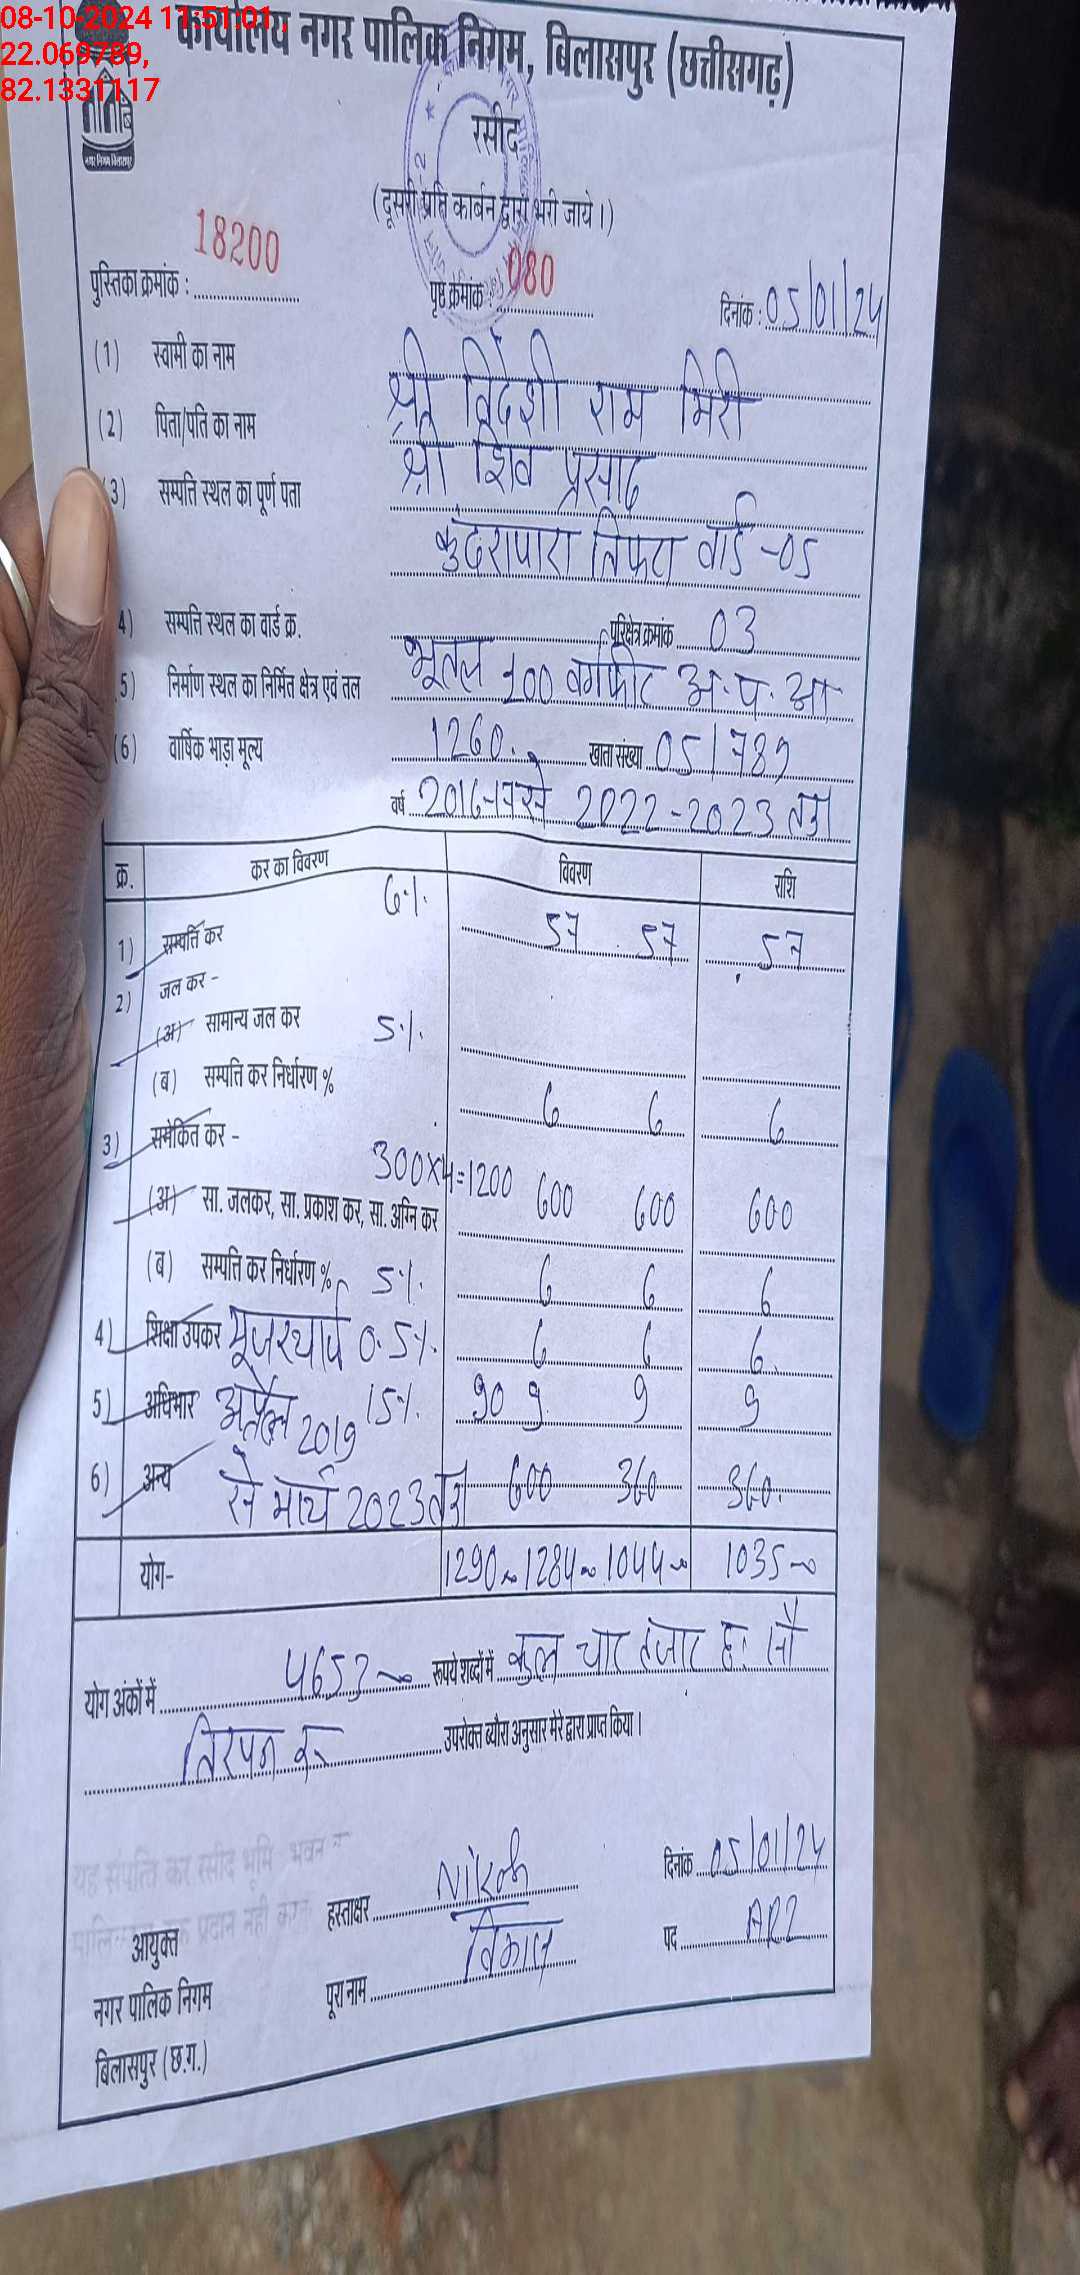 08-10-2024 11:51:01,
22.069789,
82.1331117
कार्यालय नगर पालिक निगम, बिलासपुर (छत्तीसगढ़)
नगर निगम बिलासपुर
रसीद
(दूसरी प्रति कार्बन द्वारा भरी जाये।)
पुस्तिका क्रमांक : 18200 पृष्ठ क्रमांक : 080 दिनांक : 05/01/24
(1) स्वामी का नाम श्री विदेशी राम मिरी
(2) पिता/पति का नाम श्री शिव प्रसाद
(3) सम्पत्ति स्थल का पूर्ण पता कुंदरापारा तिफरा वार्ड -05
4) सम्पत्ति स्थल का वार्ड क्र. परिक्षेत्र क्रमांक 03
5) निर्माण स्थल का निर्मित क्षेत्र एवं तल भूतल 200 वर्गफीट अ.प.आ
(6) वार्षिक भाड़ा मूल्य 1260. खाता संख्या 05/789
वर्ष 2016-17 से 2022-2023 तक
क्र. कर का विवरण विवरण राशि
1) सम्पत्ति कर 6% 57 57 57
2) जल कर -
(अ) सामान्य जल कर 5%
(ब) सम्पत्ति कर निर्धारण % 6 6 6
3) समेकित कर -
300x4=1200
(अ) सा. जलकर, सा. प्रकाश कर, सा. अग्नि कर 600 600 600
(ब) सम्पत्ति कर निर्धारण % 5% 6 6 6
4) शिक्षा उपकर 0.5% 6 6 6
5) अधिभार अप्रैल 2019 15% 90 9 9 9
6) अन्य से मार्च 2023 तक 600 360 360
योग- 1290 1284 1044 1035
योग अंकों में 4653 रूपये शब्दों में कुल चार हजार छः सौ
तिरपन रू उपरोक्त ब्यौरा अनुसार मेरे द्वारा प्राप्त किया।
यह संपत्ति कर रसीद भूमि भवन
प्रदान नहीं करता
हस्ताक्षर दिनांक 05/01/24
आयुक्त
नगर पालिक निगम
बिलासपुर (छ.ग.)
पूरा नाम विकास पद ARI